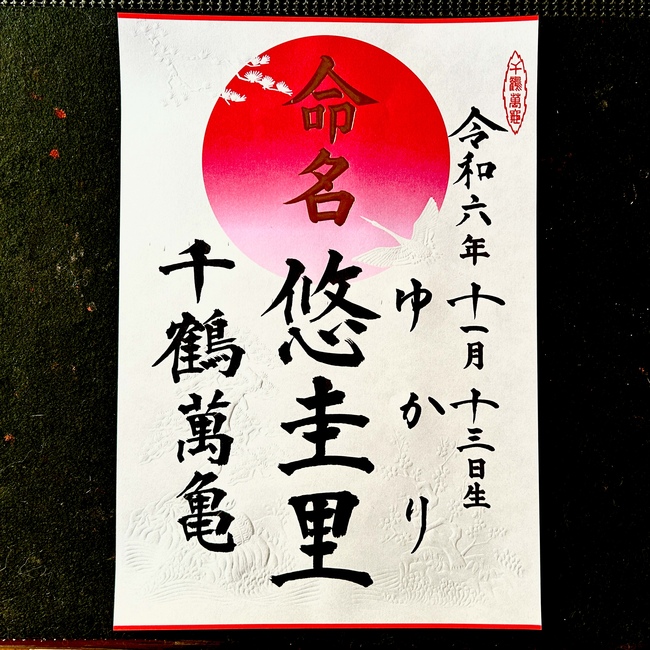 千鶴萬亀
令和六年十一月十三日生
命名
ゆかり
悠圭里
千鶴萬亀